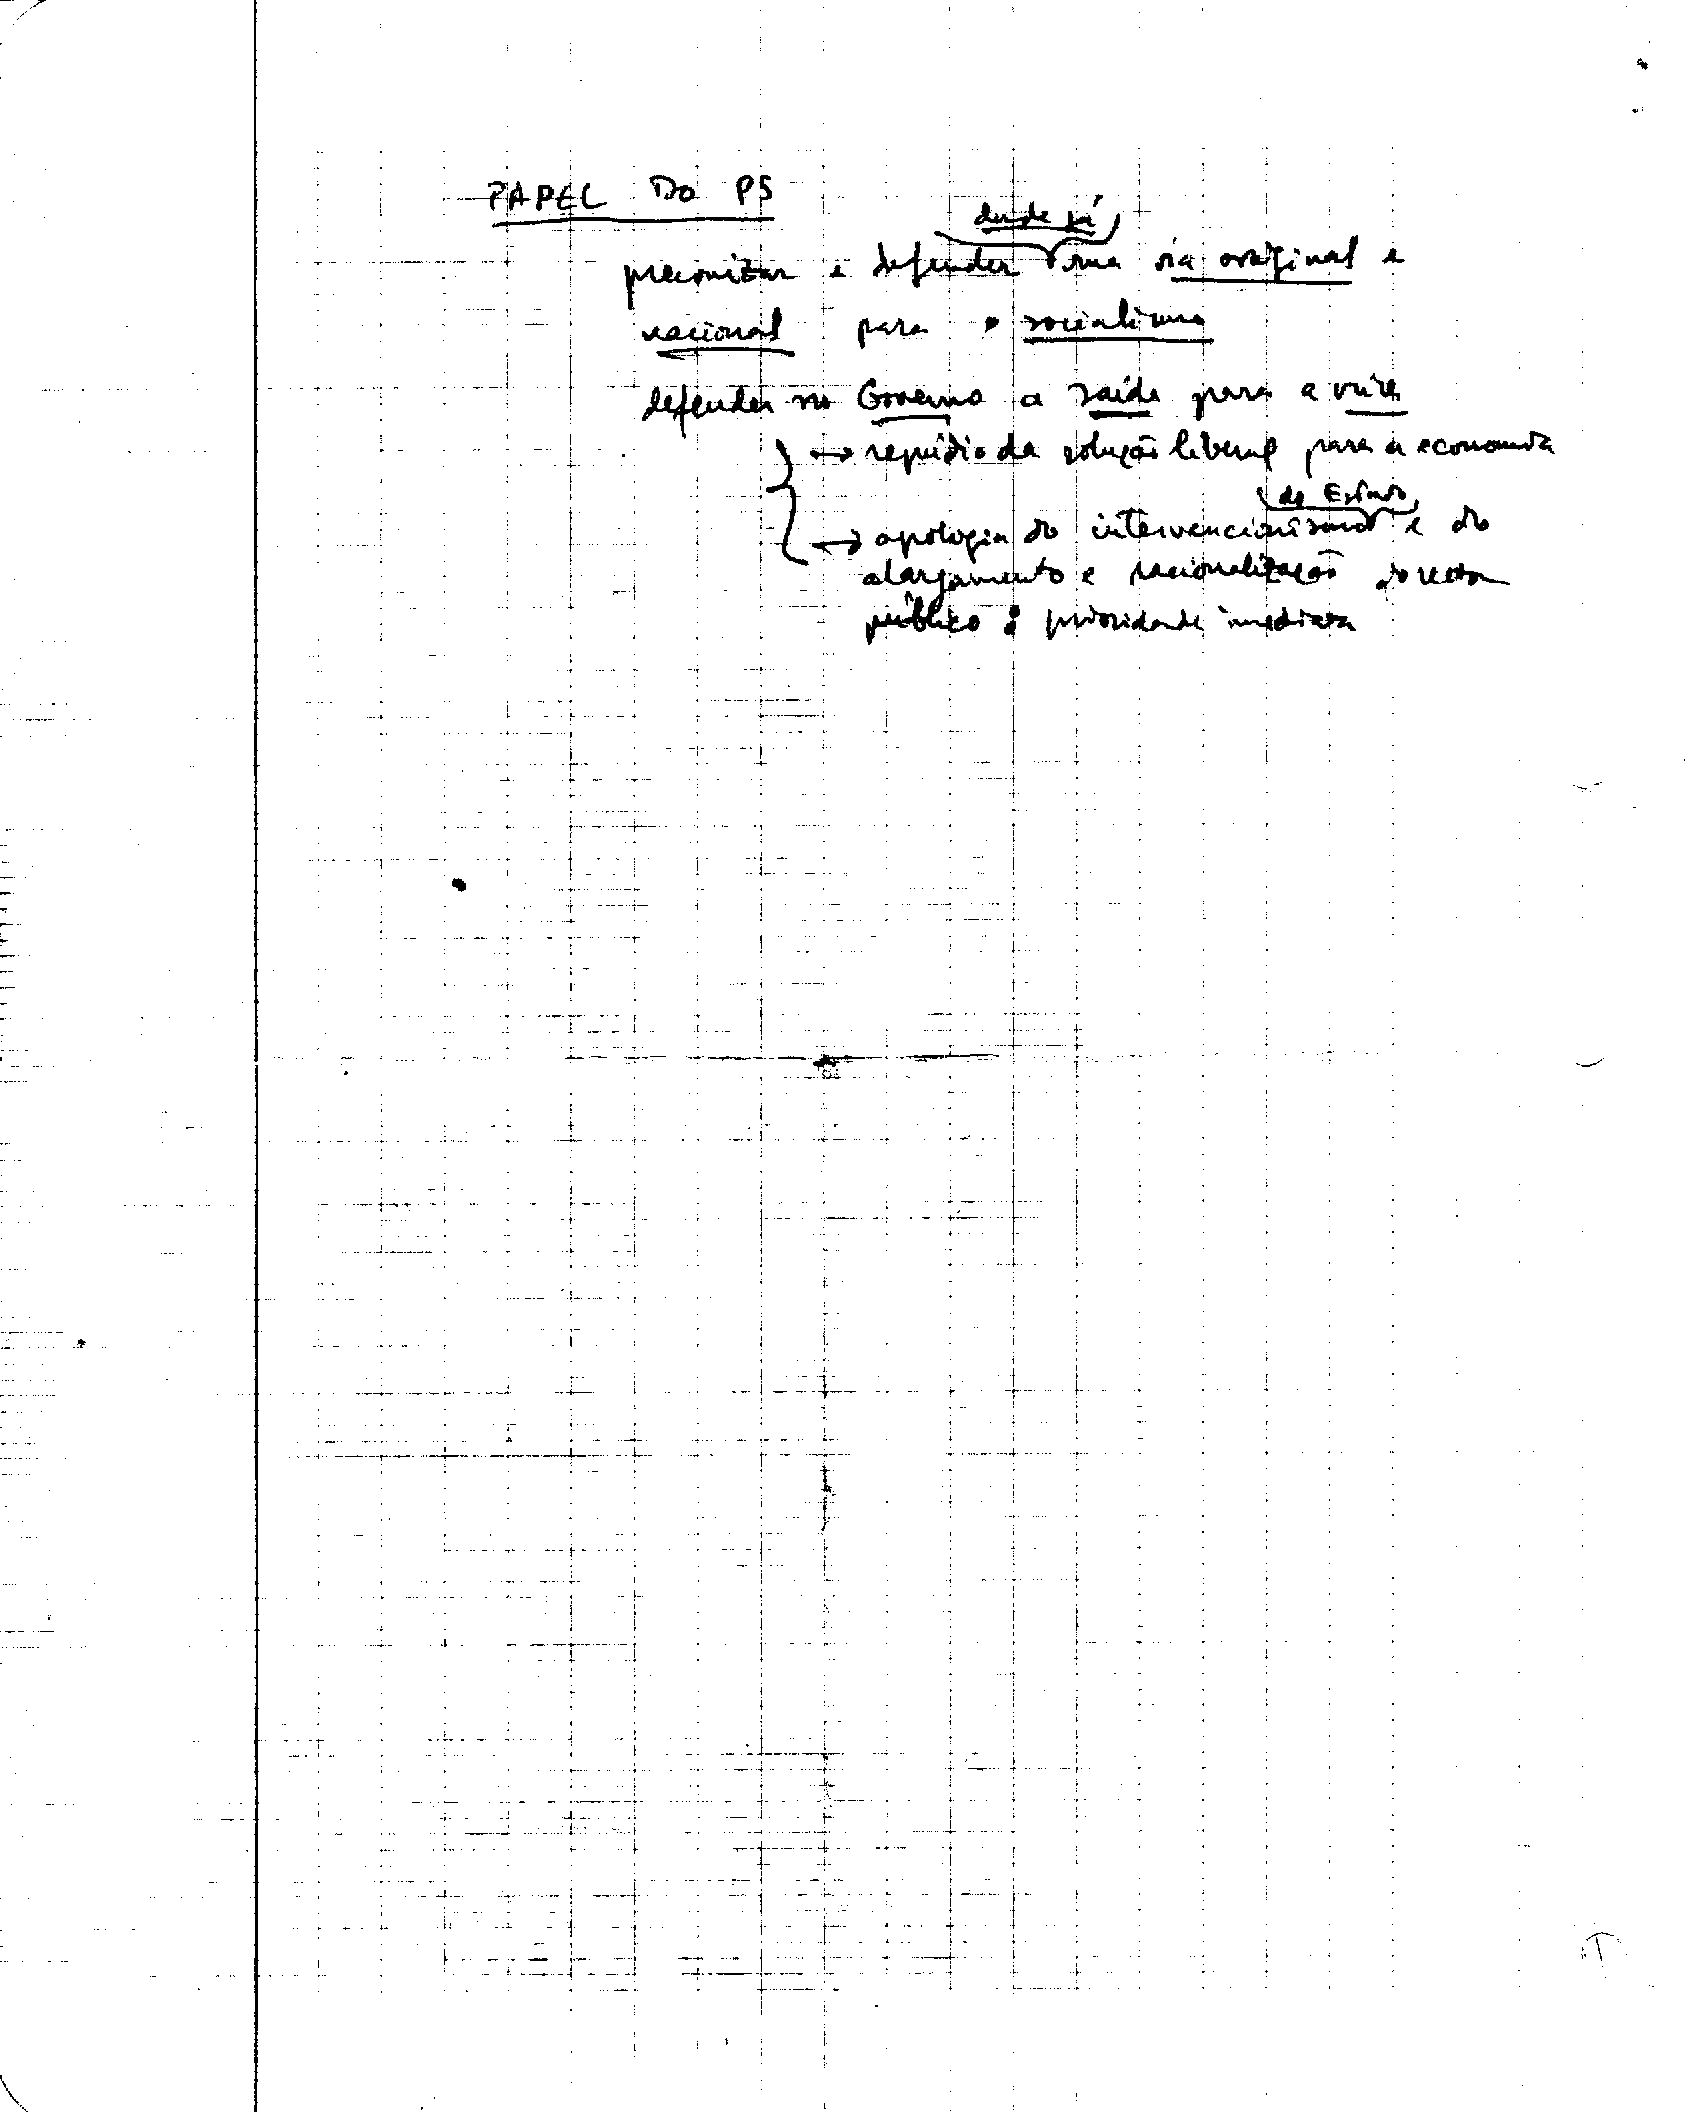 PAPEL DO PS
desde já
preconizar e defender uma via original e
nacional para o socialismo
defender no Governo a saída para a crise
→ repúdio da solução liberal para a economia
do Estado
→ apologia do intervencionismo e do
alargamento e racionalização do sector
público : prioridade imediata